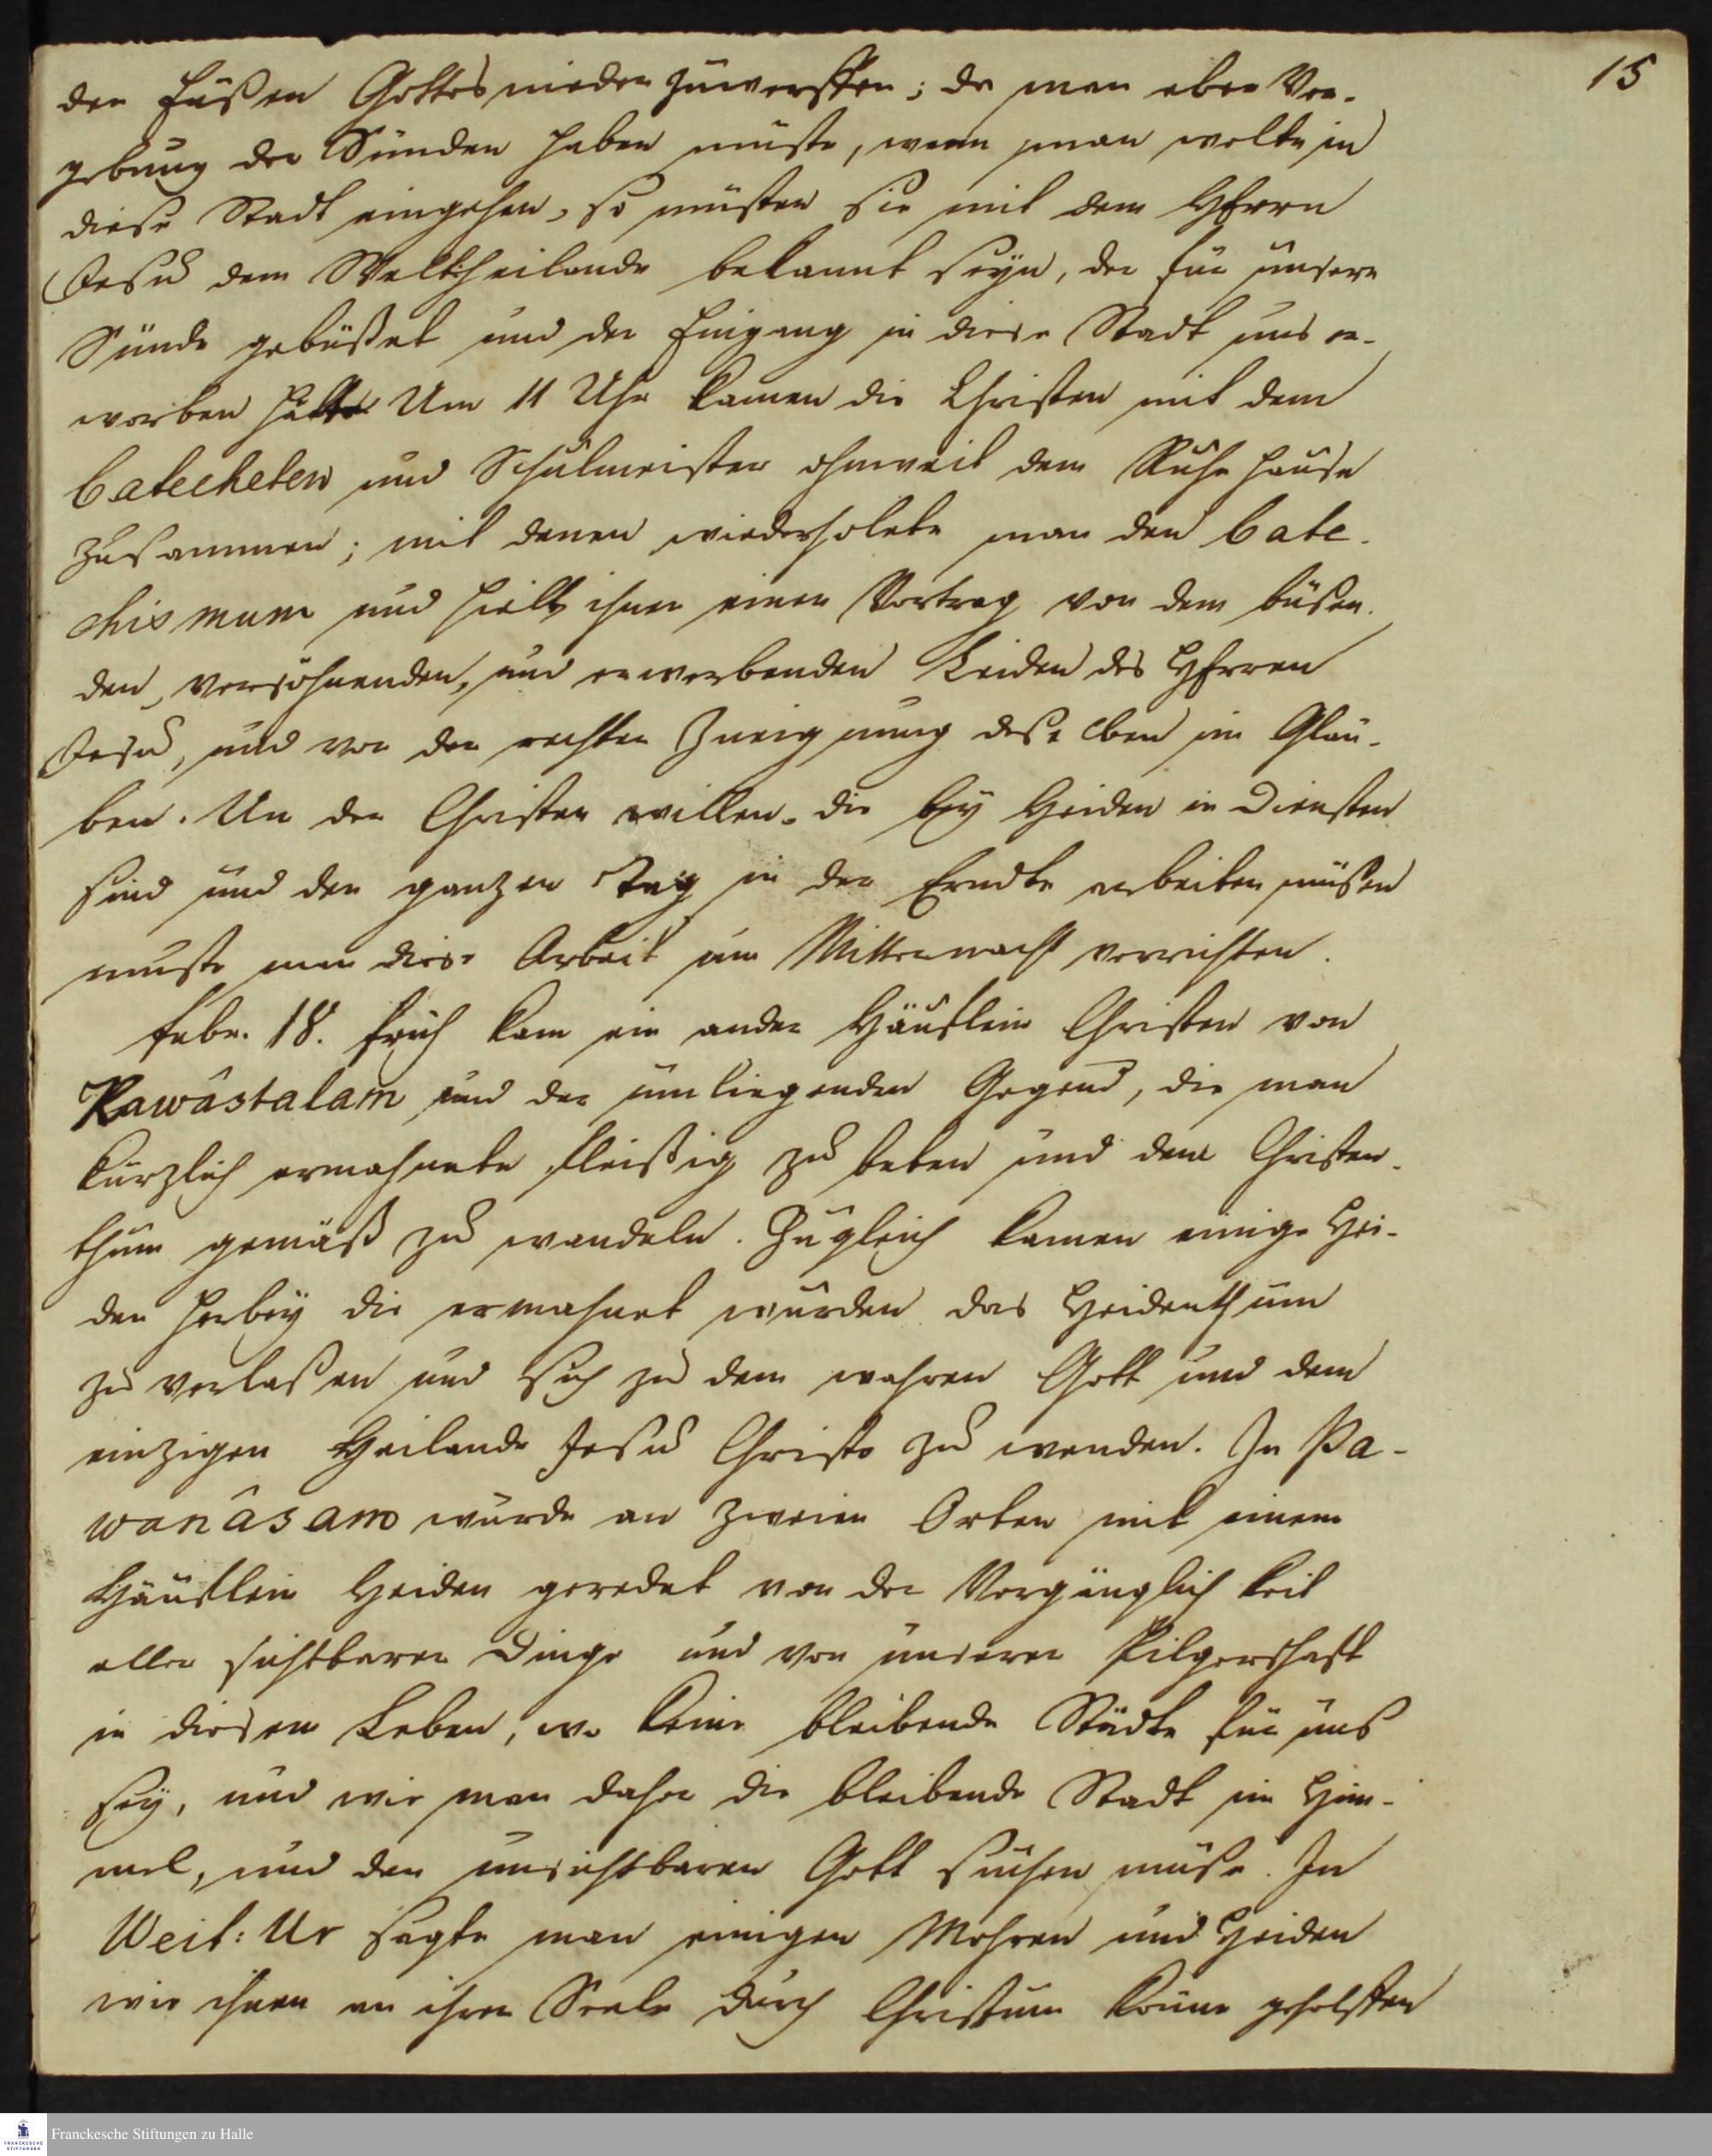 15
den Füßen Gottes niederzuwerffen; da man aber Ver-
gebung der Sünden haben müste, wenn man wolte in
diese Stadt eingehen, so müsten sie mit dem HErrn
Jesu dem Weltheilande bekannt seyn, der für unsere
Sünde gebüßet und den Eingang in diese Stadt uns er-
worben hätte. Um 11 Uhr kamen die Christen mit dem
Catecheten und Schulmeister ohnweit dem Ruhehause
zusammen; mit denen wiederholete man den Cate-
chismum und hielt ihnen einen Vortrag von dem büßen-
den, versöhnenden, und erwerbenden Leiden des HErren
Jesu, und von der rechten Zueignung deßelben im Glau-
ben. Um der Christen willen, die bey Heiden in Diensten
sind und den ganzen Tag in der Erndte arbeiten müßen
muste man diese Arbeit um Mitternacht verrichten.
Febr. 18. früh kam ein ander Häuflein Christen von
Kawâstalam und der umliegenden Gegend, die man
kürzlich ermahnete fleißig zu beten und dem Christen-
thum gemäß zu wandeln. Zugleich kamen einige Hei-
den herbey die ermahnet wurden das Heidenthum
zu verlaßen und sich zu dem wahren Gott und dem
einzigen Heilande Jesu Christo zu wenden. In Pa-
wanâsam wurde an zweien Orten mit einem
Häuflein Heiden geredet von der Vergänglichkeit
aller sichtbaren Dinge und von unserer Pilgerschaft
in diesem Leben, wo keine bleibende Städte für uns
sey, und wie man daher die bleibende Stadt im Him-
mel, und den unsichtbaren Gott suchen müße. In
Weit: Ur sagte man einigen Mohren und Heiden
wie ihnen an ihrer Seele durch Christum könne geholffen
Franckesche Stiftungen zu Halle